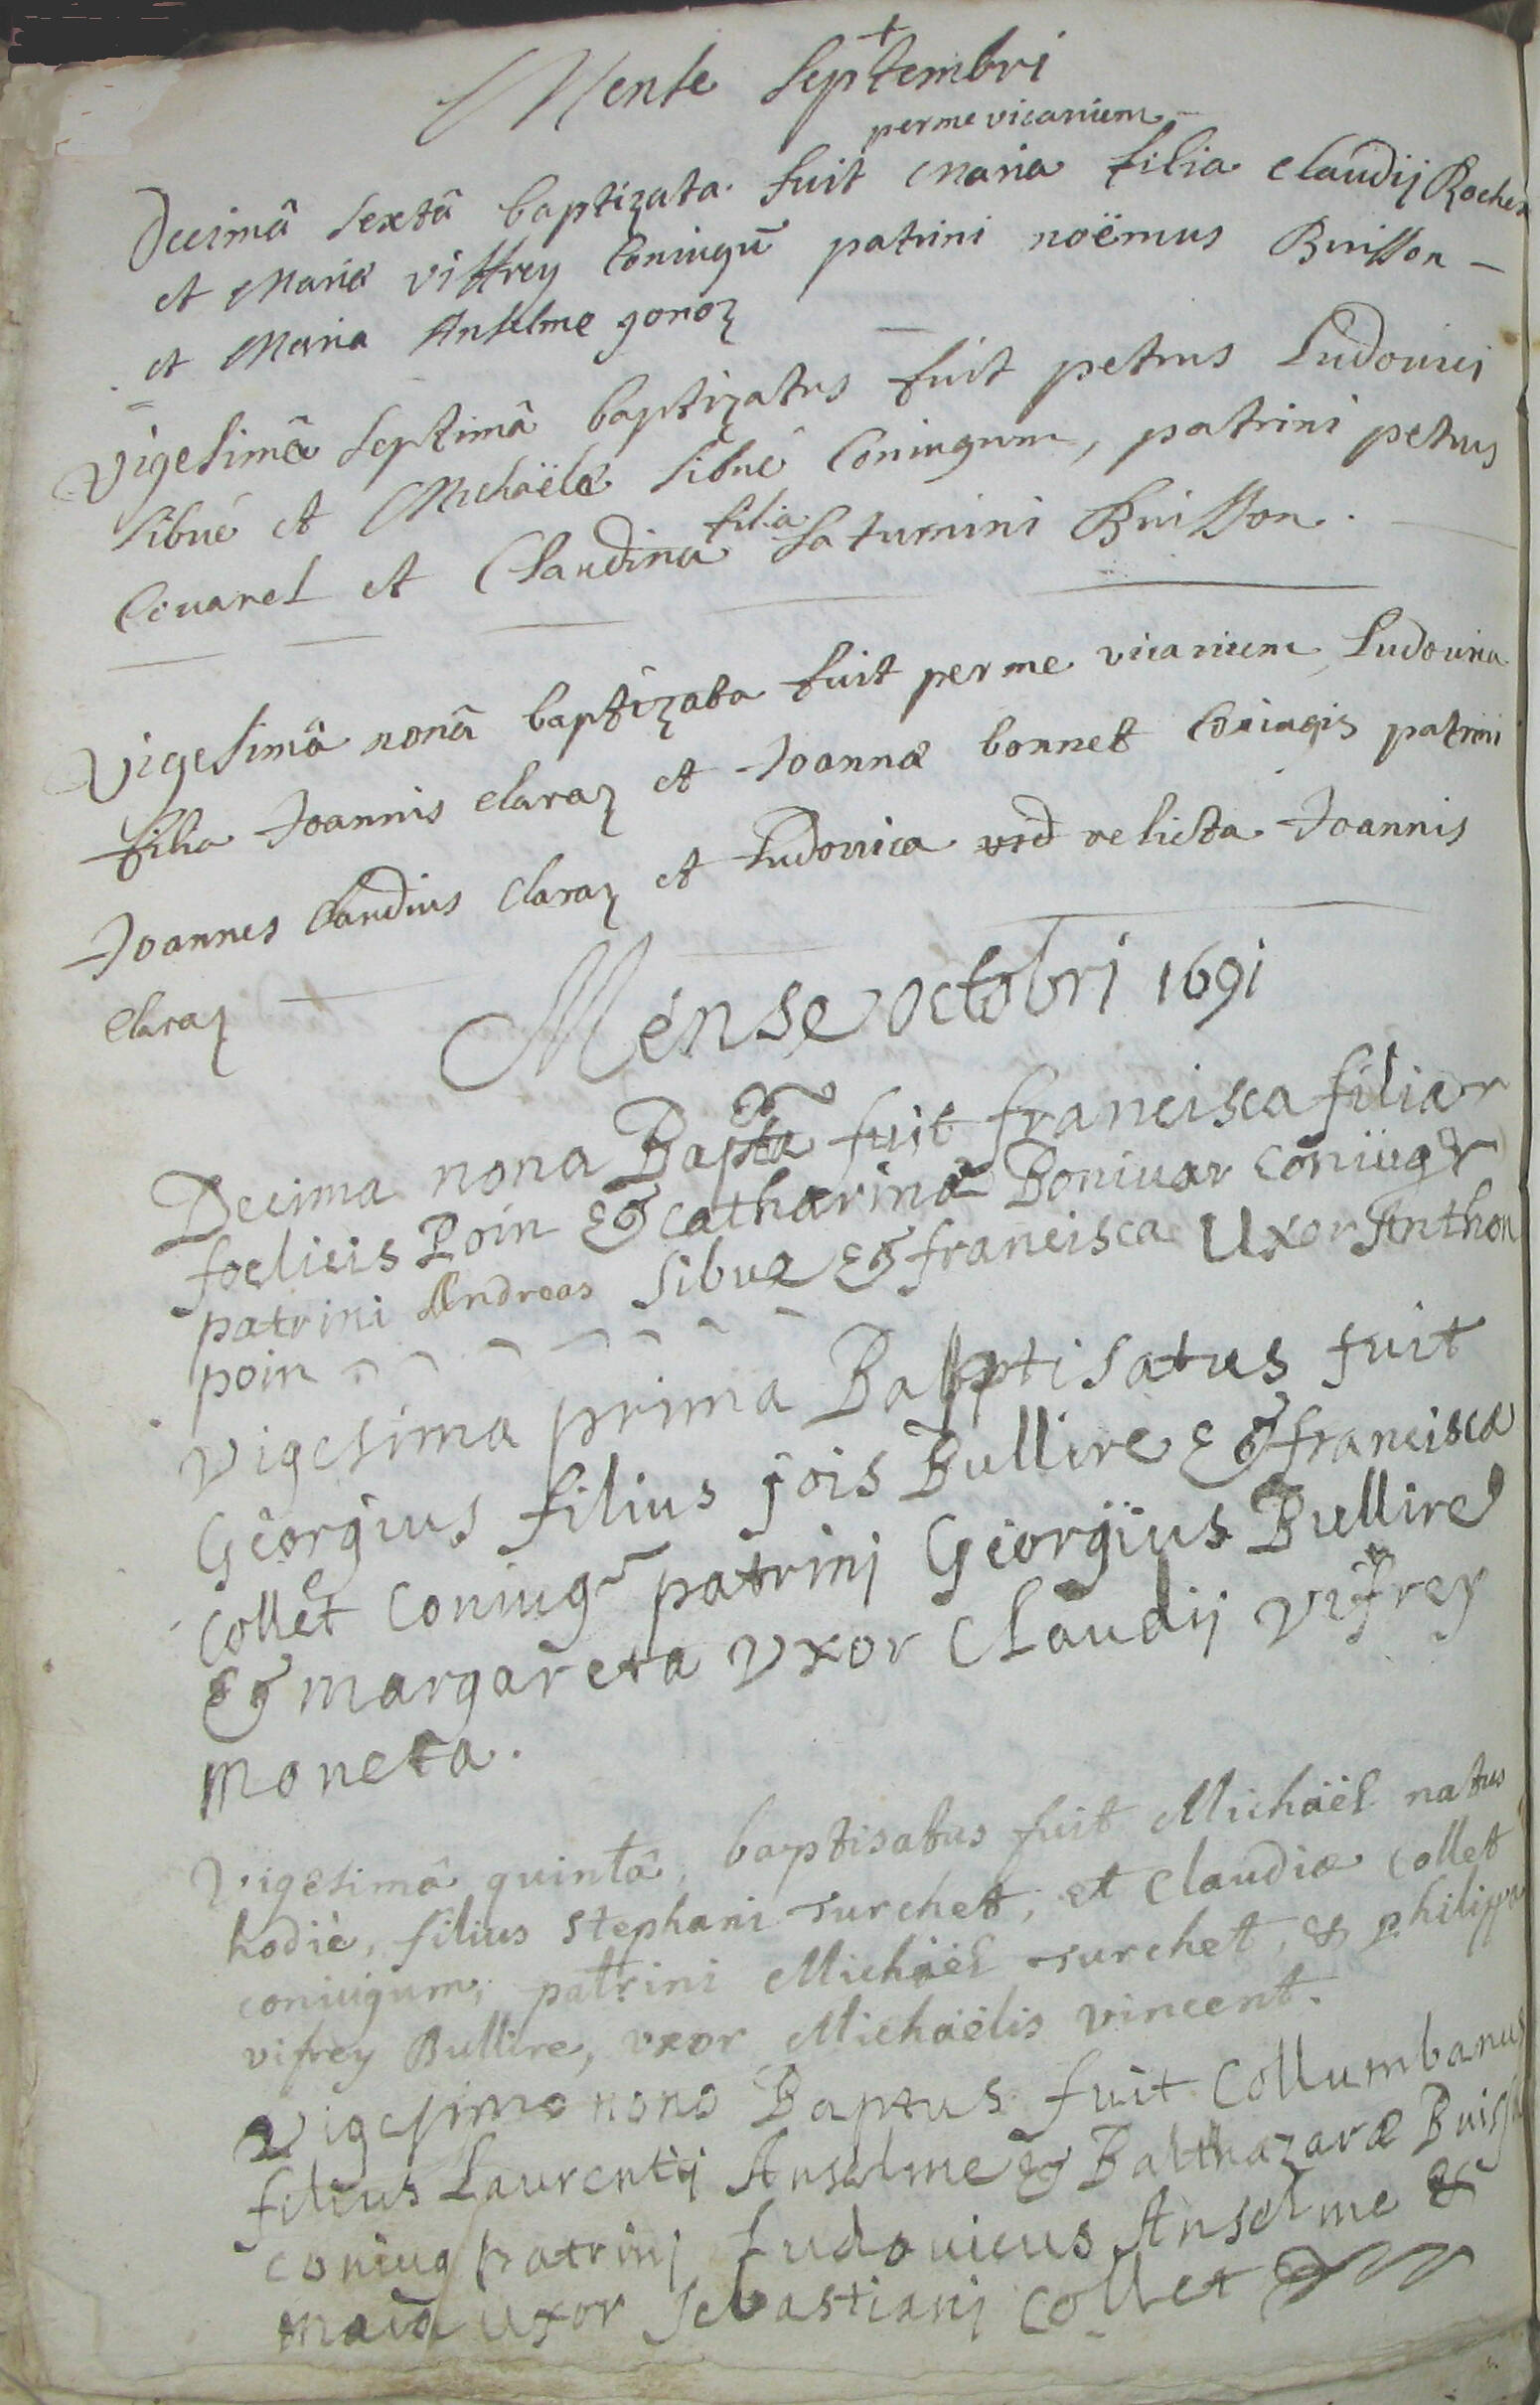 Mense Septembri
per me vicarium
Decimâ sextâ baptizata fuit Maria filia Claudij Rochex
et Mariæ viffrey Coniugū patrini noëmus Buisson
et Maria Anselme gonoz
Vigesimâ septimâ baptizatus fuit petrus Ludovici
Sibué et Michaëlæ Sibué Coniugum, patrini petrus
Couarel et Claudina filia Saturnini Buisson.
Vigesimâ nonâ baptizata fuit per me vicarium Ludovica
filia Joannis Claraz et Joannæ bonnet Coniugis patrini
Joannes Claudius Claraz et Ludovica vid relicta Joannis
Claraz
Mense octobri 1691
Decima nona Bapta fuit francisca filia
foelicis Poin & catharinæ Boniuar coniug
patrini Andreas Sibue & francisca Uxor Anthon
poin
Vigesima prima Baptisatus fuit
Georgius filius jois Bullire & franciscæ
Collet Coniug patrinj Georgius Bullire
& margareta Vxor Claudij Vifrey
Moneta.
Vigesimâ quintâ, baptisatus fuit Michaël natus
hodiè, filius Stephani Turchet, et Claudiæ Collet
coniugum; patrini Michaël Turchet, & philippa
vifrey Bullire, vxor Michaëlis vincent.
Vigesima nona Baptus fuit Collumbanus
filius Laurentij Anselme & Balthazaræ Buiss
coniug patrinj Ludouicus Anselme &
Maria uxor Sebastianj Collet